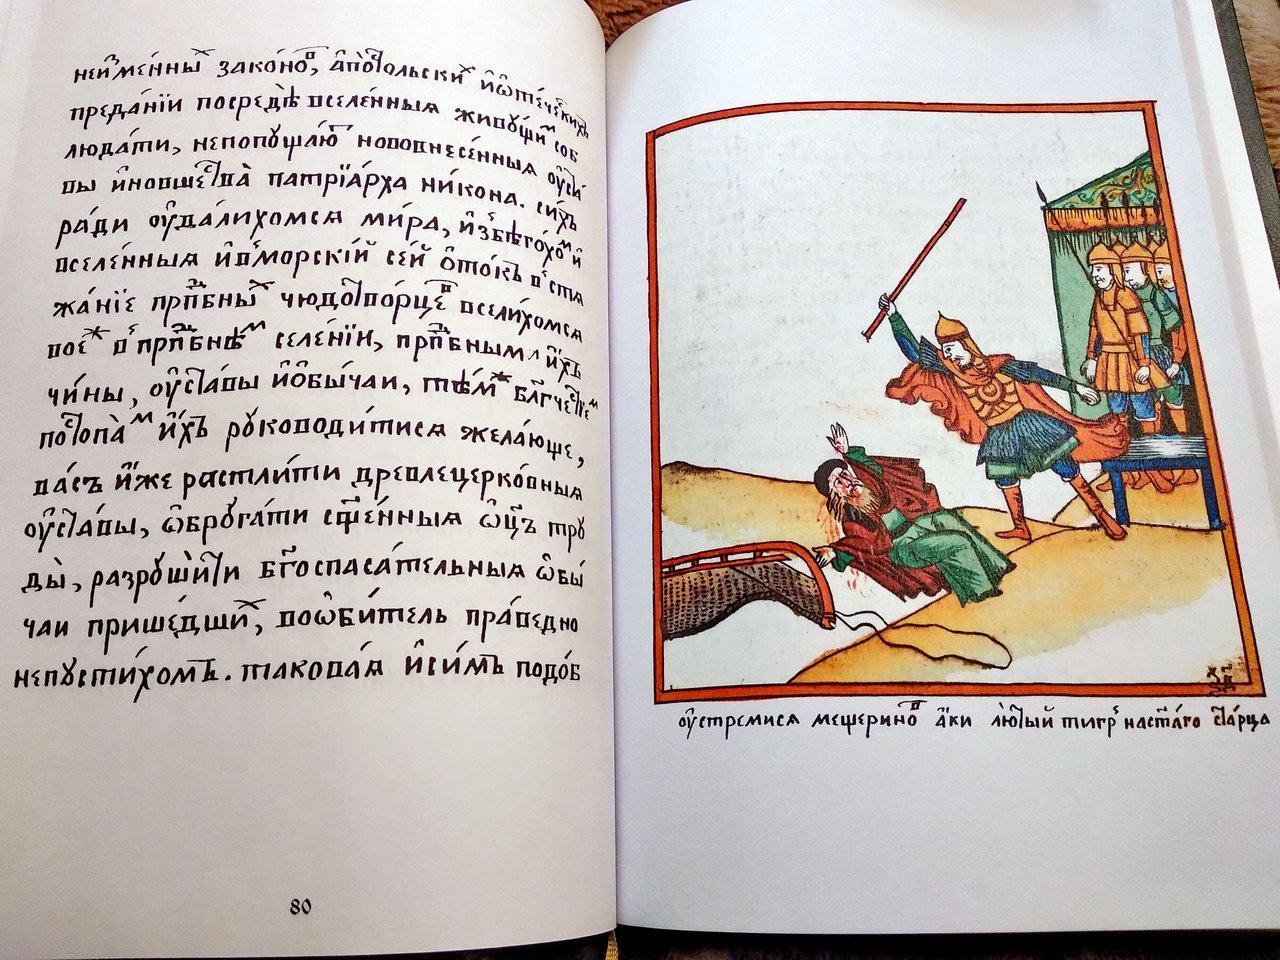 неи҆́зме́нныⷯ зако́ноⷡ҇, а҆пⷭ҇то́льскиⷯ и҆ѡ҆те́ческихъ
преда́нїи посредѣ̀ вселе́нныя живꙋ́щиⷨ с̾об
люда́ти, непопꙋща́юⷮ нововнесе́нныя оу҆ста́
вы и҆новшества̀ патрїа́рха ни́кона. си́хъ
ра́ди оу҆дали́хомся ми́ра, и҆збѣго́хоⷨ и҆
вселе́нныя и҆в̾морскі́й се́й ѻ҆́токъ в̾стя
жа́нїе прпⷣбныⷯ чюдотво́рцеⷡ вселихомся
воеⷤ в̾прпⷣбнѣⷨ селе́нїи, прпⷣбным и҆́хъ
чи́ны, оу҆ста́вы и҆ѻ҆бы́чаи, тѣ́мⷤ бл҃гче́стїеⷨ
постопа́ⷨ и҆́хъ рꙋководи́тися жела́юще,
ва́съ и҆́же растли́ти древлецерко́вныя
оу҆ста́вы, ѡ҆брꙋга́ти сщ҃е́нныя ѻ҆ц҃ъ трꙋ
ды̀, разрꙋши́ти бг҃оспаса́тельныя ѻ҆бы́
чаи прише́дшиⷯ, воѻ҆би́тель пра́ведно
непꙋсти́хомъ. такова́я и҆си́мъ подо́б
80
оу҆стреми́ся мещериноⷡ а҆́ки лю́тый тигр̾ наста́го ста́рца